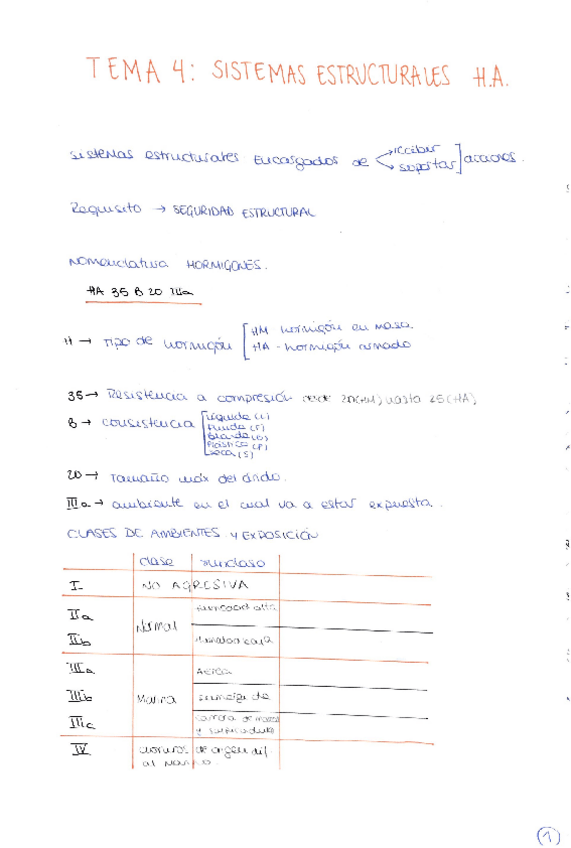 TEMA 4: SISTEMAS ESTRUCTURALES H.A.
Sistemas estructurales Encargados de → recibir → soportar ] acciones.
Requisito → SEGURIDAD ESTRUCTURAL
Nomenclatura HORMIGONES.
HA 35 B 20 IIIa
H → Tipo de hormigón [ HM hormigón en masa.
HA - hormigón armado
35 → Resistencia a compresión desde 20(HM) hasta 25(HA)
B → consistencia [ Líquida (L)
Fluida (F)
Blanda (B)
Plástica (P)
seca (S)
20 → Tamaño máx del árido.
IIIa → ambiente en el cual va a estar expuesta.
CLASES DE AMBIENTES Y EXPOSICIÓN
clase subclase
I NO AGRESIVA
IIa Normal humedad alta
IIb humedad
IIIa Marina Aérea
IIIb sumergida
IIIc carrera de mareas
y salpicaduras
IV cloruros de origen dif.
al marino.
1